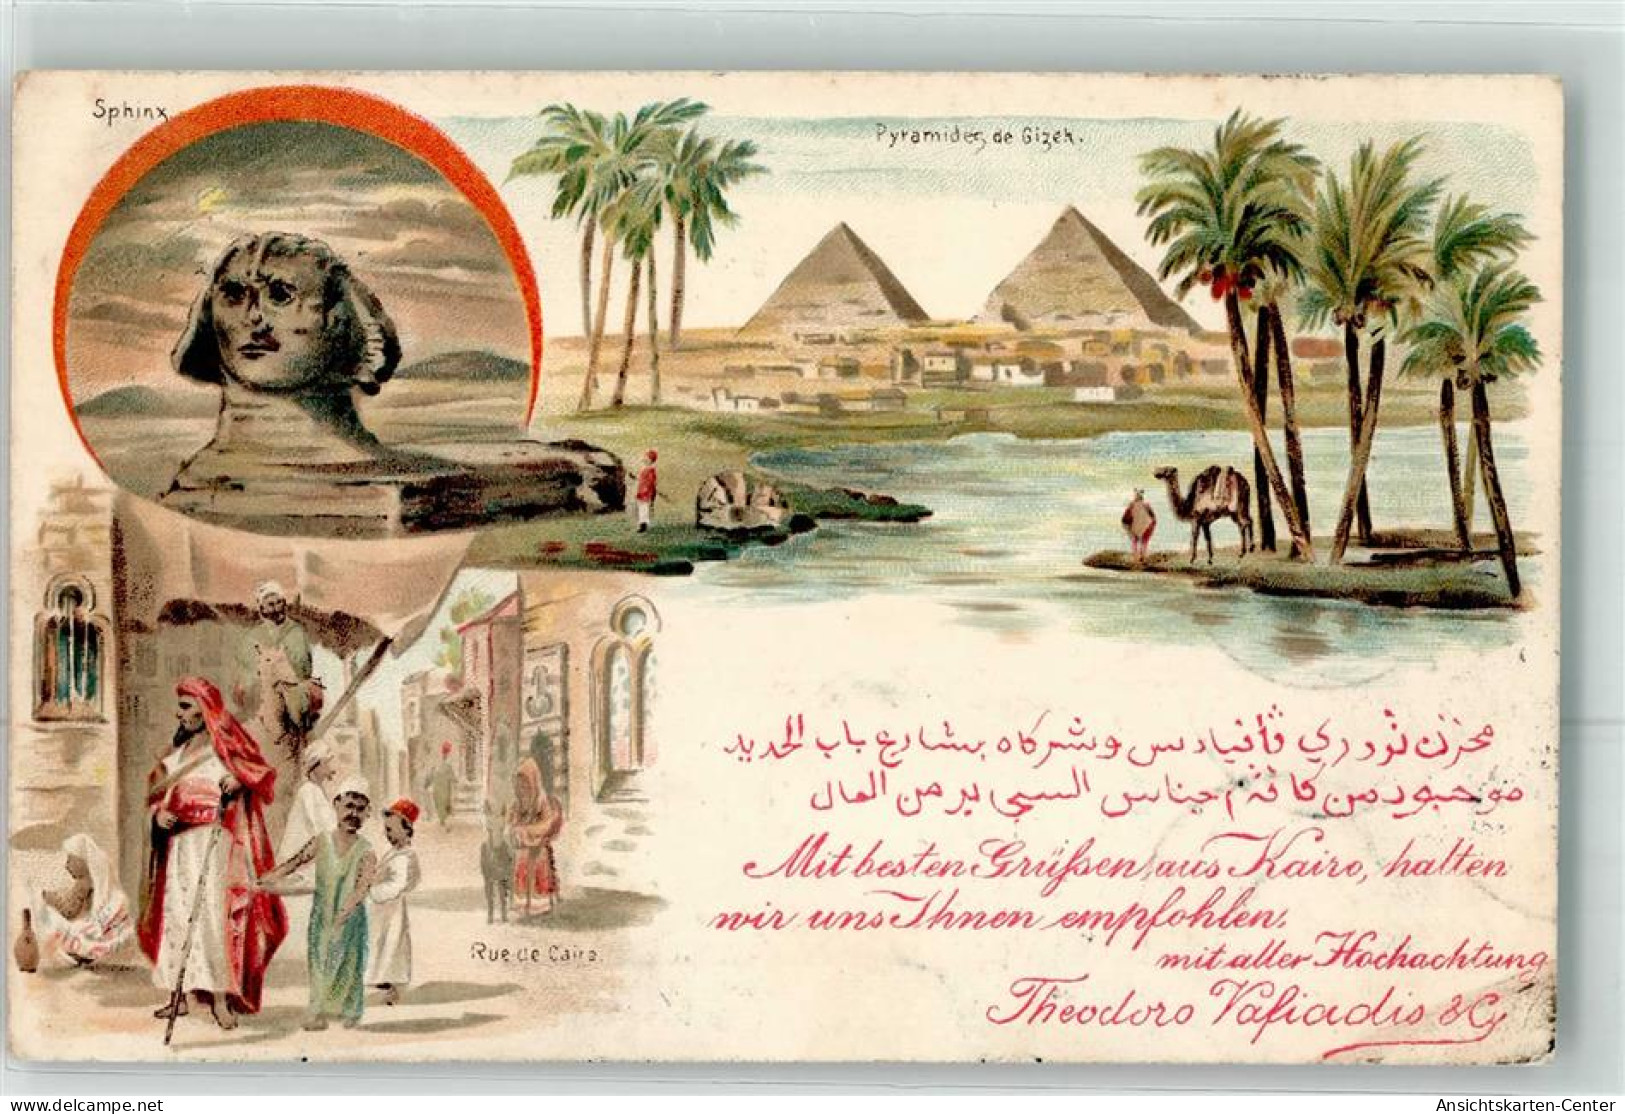 Sphinx
Pyramides de Gizeh.
مخزن ثودري ڤافيادس وشركاه بشارع باب الحديد
من
Mit besten Grüßen aus Kairo, halten
wir uns Ihnen empfohlen.
mit aller Hochachtung
Theodoro Vafiadis & Cy
Rue de Caire.
delcampe.net
Ansichtskarten-Center